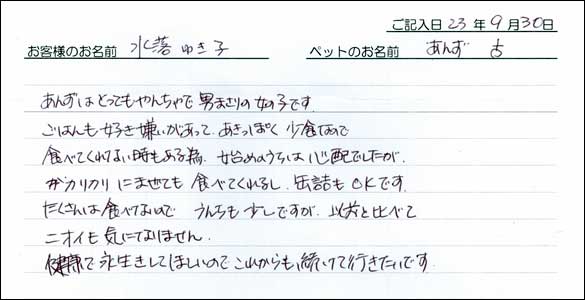 ご記入日 23 年 9 月 30 日
お客様のお名前 水落 ゆき子 ペットのお名前 あんず
あんずはとってもやんちゃで男まさりの女の子です。
ごはんも好き嫌いがあって、あきっぽく 少食なので
食べてくれない時もある為、始めのうちは心配でしたが、
カリカリにまぜても食べてくれるし、缶詰もOKです。
たくさんは食べないので うんちも少しですが、以前と比べて
ニオイも気になりません。
健康で永生きしてほしいのでこれからも続けて行きたいです。